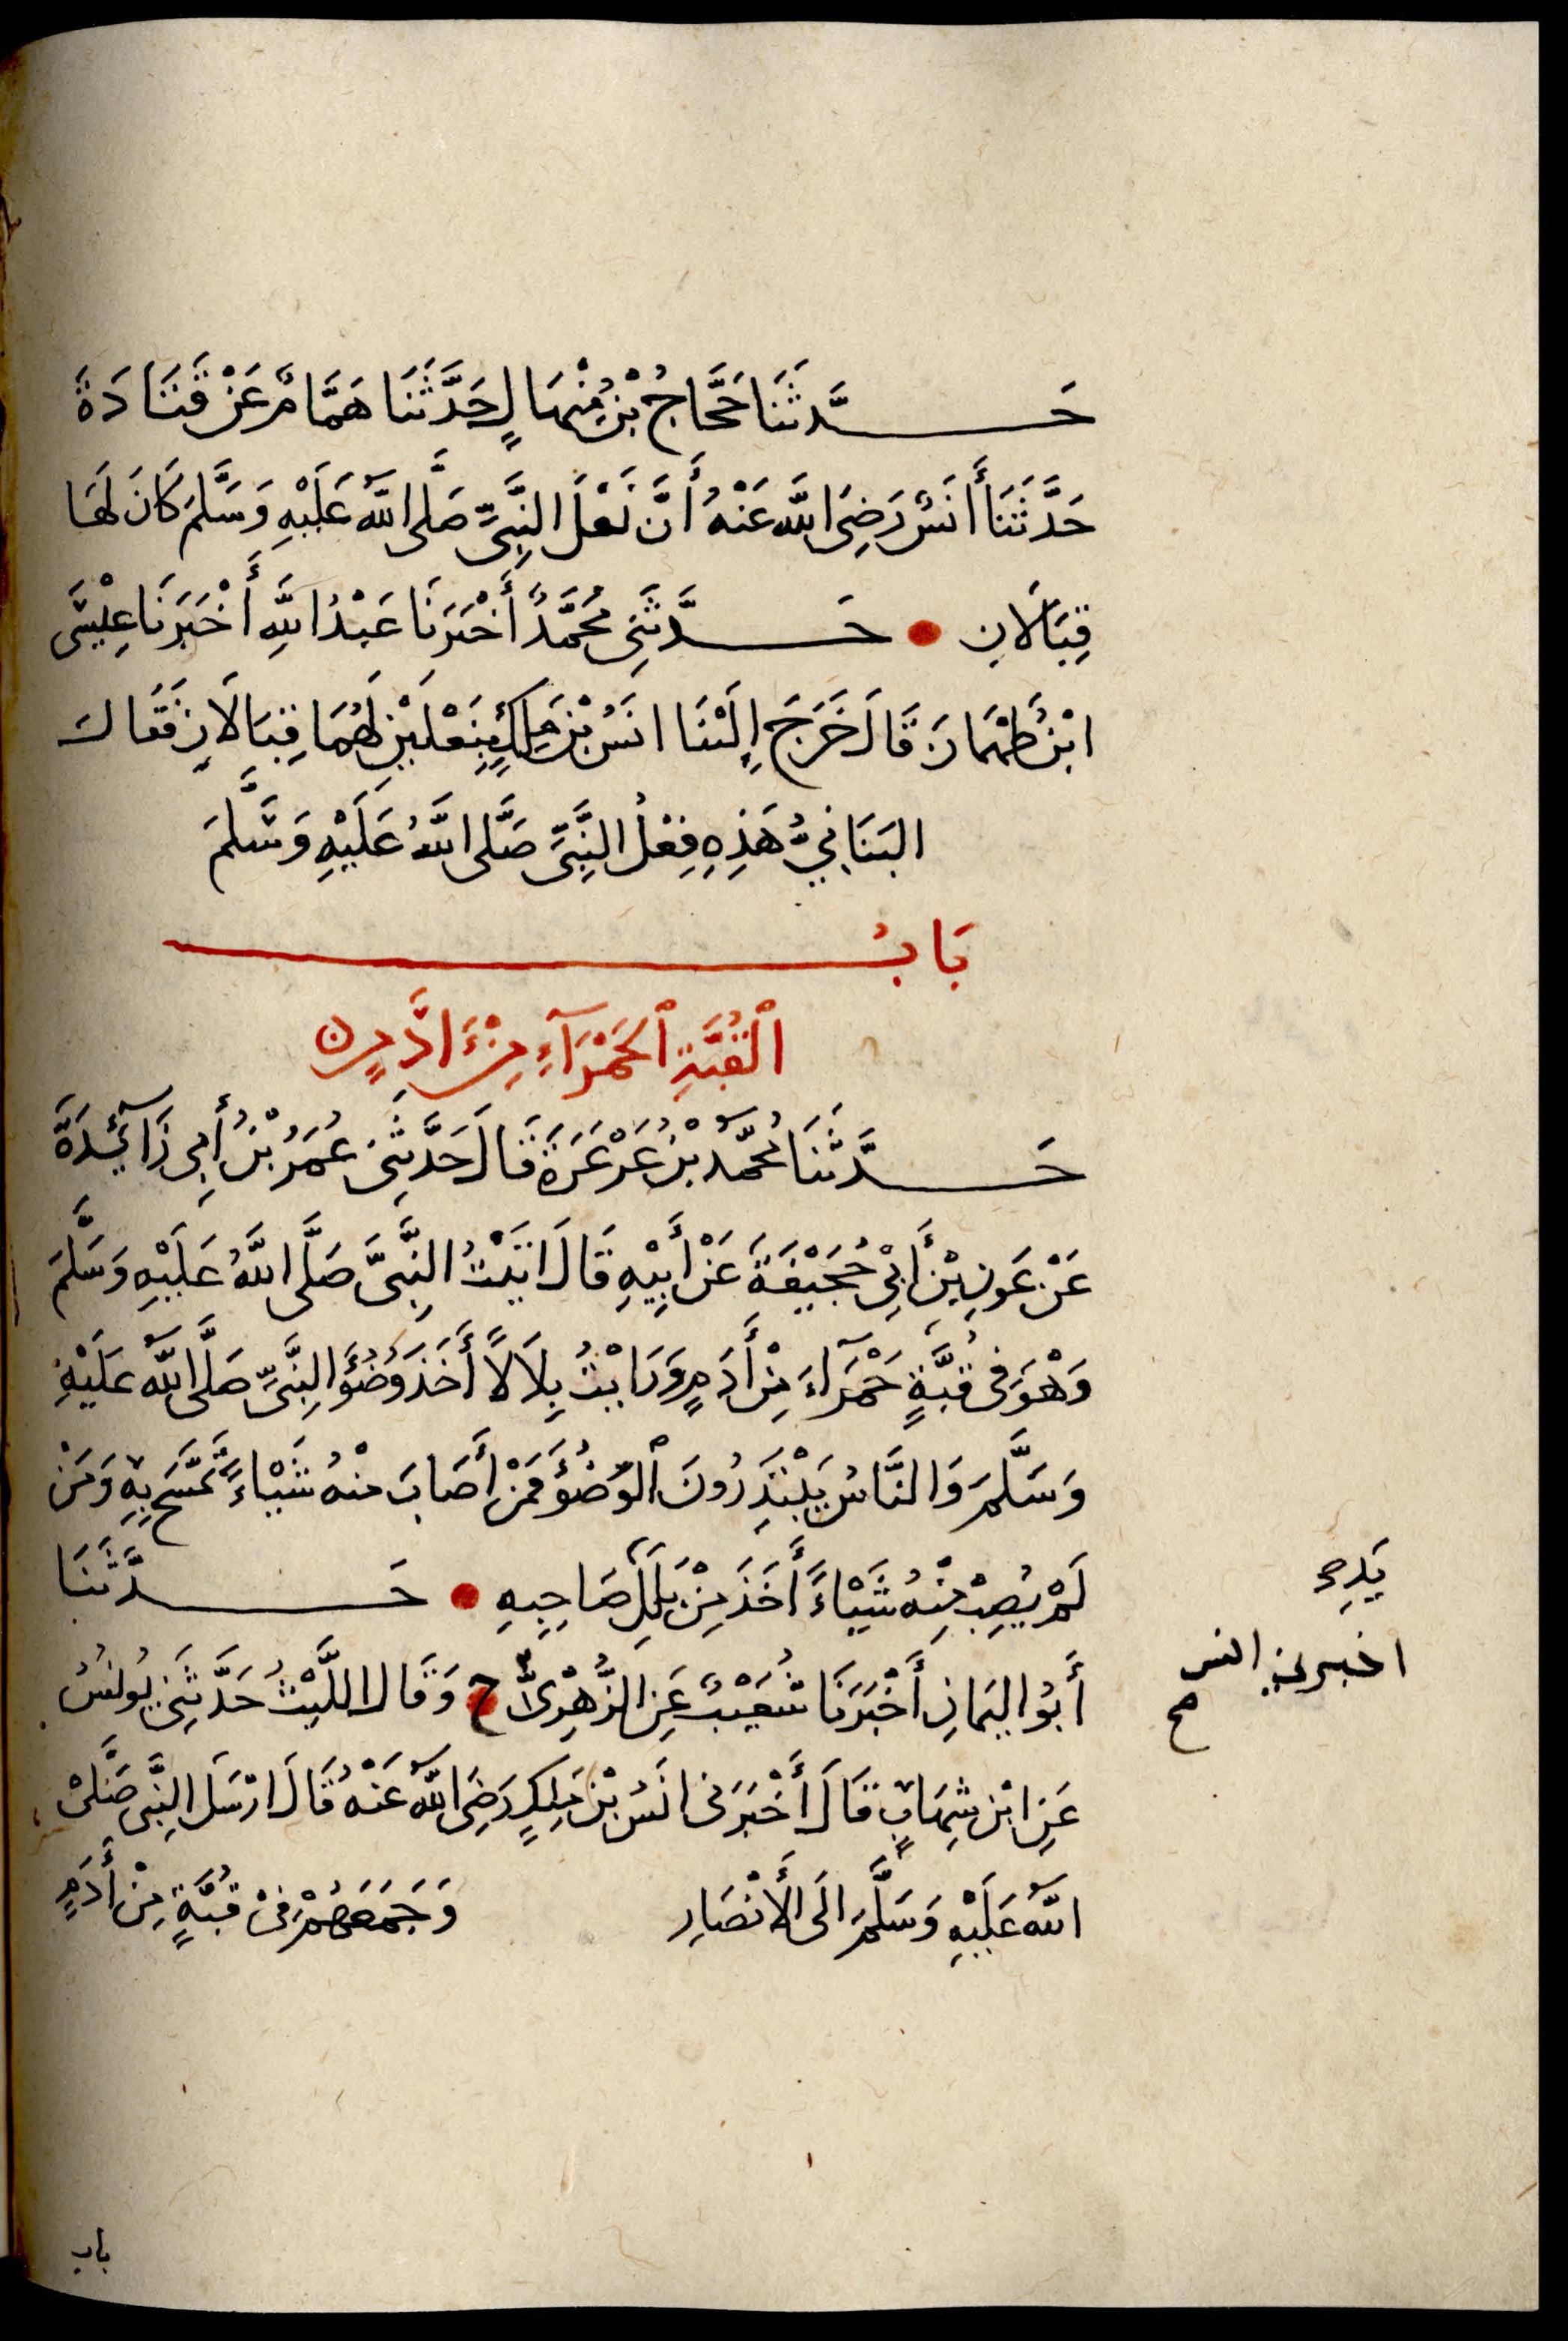 حَدَّثَنَا حَجَّاجُ بْنُ مِنْهَالٍ حَدَّثَنَا هَمَّامٌ عَنْ قَتَادَةَ
حَدَّثَنَا أَنَسٌ رَضِيَ اللَّهُ عَنْهُ أَنَّ نَعْلَ النَّبِيِّ صَلَّى اللَّهُ عَلَيْهِ وَسَلَّمَ كَانَ لَهَا
قِبَالَانِ • حَدَّثَنِي مُحَمَّدٌ أَخْبَرَنَا عَبْدُ اللَّهِ أَخْبَرَنَا عِيسَى
ابْنُ طَهْمَانَ قَالَ خَرَجَ إِلَيْنَا انَسُ بْنُ مَلِكٍ بِنَعْلَيْنِ لَهُمَا قِبَالَانِ فَقَالَ
البَنَانِيُّ هَذِهِ فِعْلُ النَّبِيِّ صَلَّى اللَّهُ عَلَيْهِ وَسَلَّمَ
بَابُ
الْقُبَّةِ الْحَمْرَآءِ مِنْ اَدَمٍ
حَدَّثَنَا مُحَمَّدُ بْنُ عَرْعَرَةَ قَالَ حَدَّثَنِي عُمَرُ بْنُ أَبِي زَآئِدَةَ
عَنْ عَونِ بْنِ أَبِي جُحَيْفَةَ عَنْ أَبِيْهِ قَالَ اتَيْتُ النَّبِيَّ صَلَّى اللَّهُ عَلَيْهِ وَسَلَّمَ
وَهْوَ فِي قُبَّةٍ حَمْرَآءَ مِنْ أَدَمٍ وَرَايْتُ بِلَالًا أَخَذَ وَضُؤَ النَّبِيِّ صَلَّى اللَّهُ عَلَيْهِ
وَسَلَّمَ وَالنَّاسُ يَبْتَدِرُونَ الْوَضُؤَ فَمَنْ أَصَابَ مِنْهُ شَيْاءً تَمَسَّحَ بِهِ وَمَنْ
لَمْ يُصِبْ مِنْهُ شَيْاءً أَخَذَ مِنْ بَلَلِ صَاحِبِهِ • حَدَّثَنَا
أَبُو اليَمَانِ أَخْبَرَنَا شُعَيْبٌ عَنِ الزُّهْرِيِّ ح وَقَالَ اللَّيْثُ حَدَّثَنِي يُونُسُ
عَنِ ابْنِ شِهَابٍ قَالَ أَخْبَرَنِي انَسُ بْنُ مَلِكٍ رَضِيَ اللَّهُ عَنْهُ قَالَ ارْسَلَ النَّبِيُّ صَلَّى
اللَّهُ عَلَيْهِ وَسَلَّمَ الَى الْأَنْصَارِ وَجَمَعَهُمْ فِي قُبَّةٍ مِنْ أَدَمٍ
اخبرني انس
صح
باب